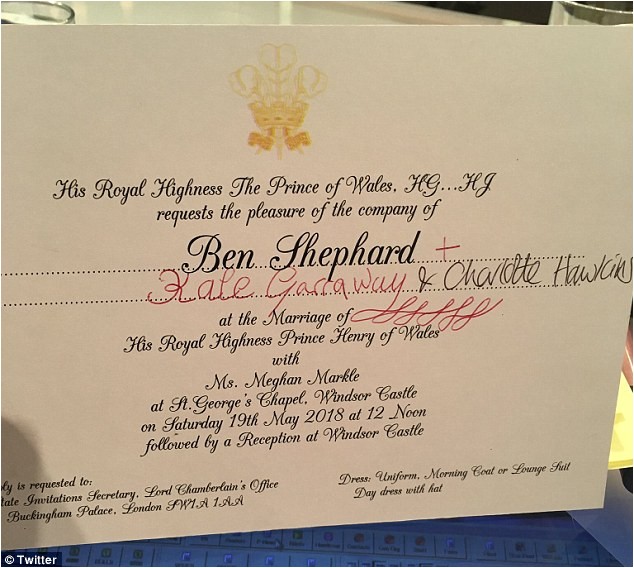 His Royal Highness The Prince of Wales, HG...HJ
requests the pleasure of the company of
Ben Shephard +
Kate Garraway & Charlotte Hawkins
at the Marriage of
His Royal Highness Prince Henry of Wales
with
Ms. Meghan Markle
at St.George's Chapel, Windsor Castle
on Saturday 19th May 2018 at 12 Noon
followed by a Reception at Windsor Castle
ply is requested to:
tate Invitations Secretary, Lord Chamberlain's Office
Buckingham Palace, London SW1A 1AA
Dress: Uniform, Morning Coat or Lounge Suit
Day dress with hat
© Twitter